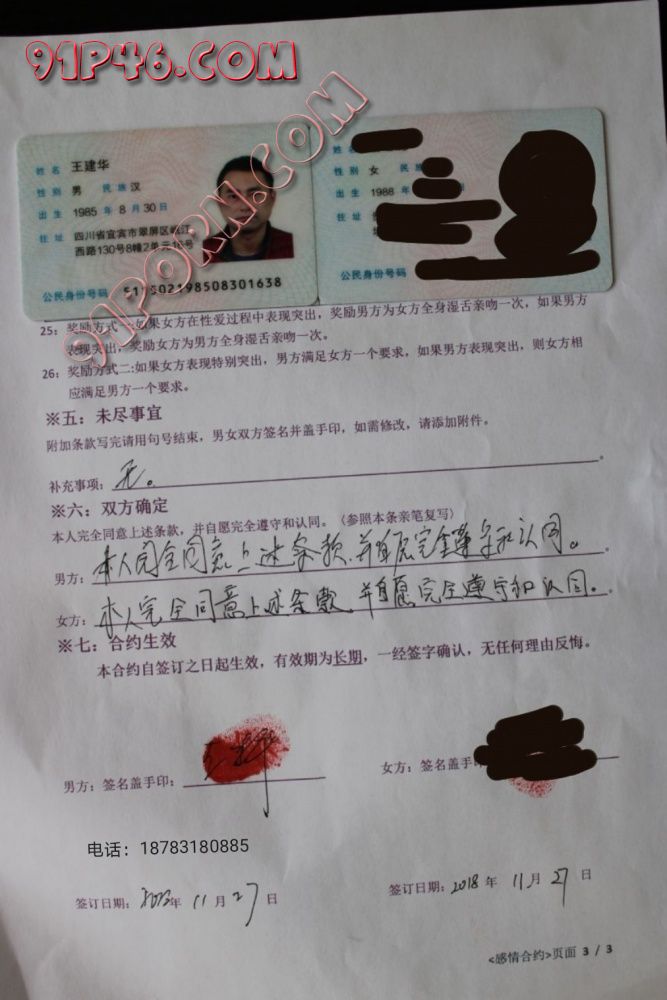 91P46.COM
91PORN.COM
姓名
性别 男 民族 汉
出生
住址
公民身份号码
姓名
性别 女 民族
出生 1988 年
住址
公民身份号码
25: 奖励方式一:如果女方在性爱过程中表现突出，奖励男方为女方全身湿舌亲吻一次，如果男方
表现突出，奖励女方为男方全身湿舌亲吻一次。
26: 奖励方式二:如果女方表现特别突出，男方满足女方一个要求，如果男方表现突出，则女方相
应满足男方一个要求。
※五：未尽事宜
附加条款写完请用句号结束，男女双方签名并盖手印，如需修改，请添加附件。
补充事项：无。
※六：双方确定
本人完全同意上述条款，并自愿完全遵守和认同。（参照本条亲笔复写）
男方：本人完全同意上述条款，并自愿完全遵守和认同。
女方：本人完全同意上述条款，并自愿完全遵守和认同。
※七：合约生效
本合约自签订之日起生效，有效期为长期，一经签字确认，无任何理由反悔。
男方：签名盖手印：
女方：签名盖手
电话：
签订日期： 年 11 月 27 日
签订日期：2018 年 11 月 27 日
<感情合约>页面 3 / 3